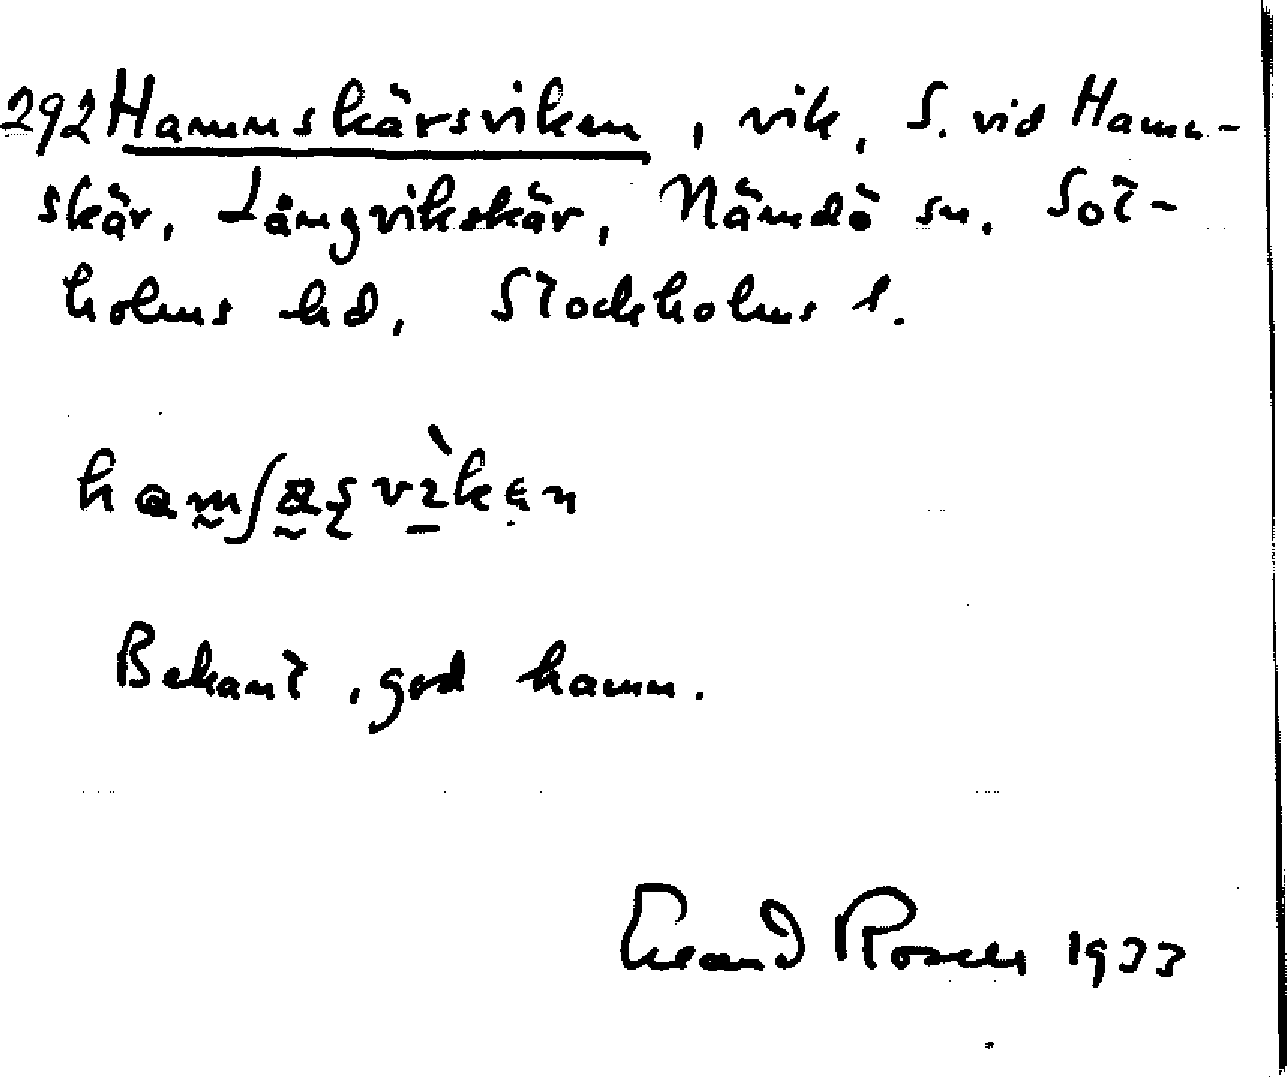 292 Hamnskärsviken, vik, S. vid Hamn-
skär, Långvikskär, Nämdö sn. Sot-
holms hd, Stockholms l.
Bekant, god hamn.
Eland Rosell 1933